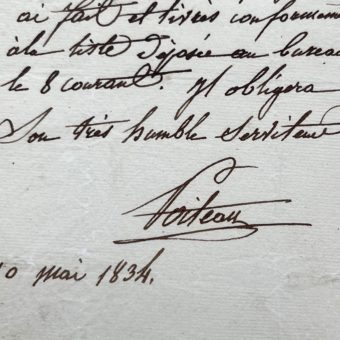 ai fait et livrés conformémen
à la liste déposée au bureau
le 8 courant. Il obligera
Son très humble Serviteur
Poiteau
10 mai 1834.